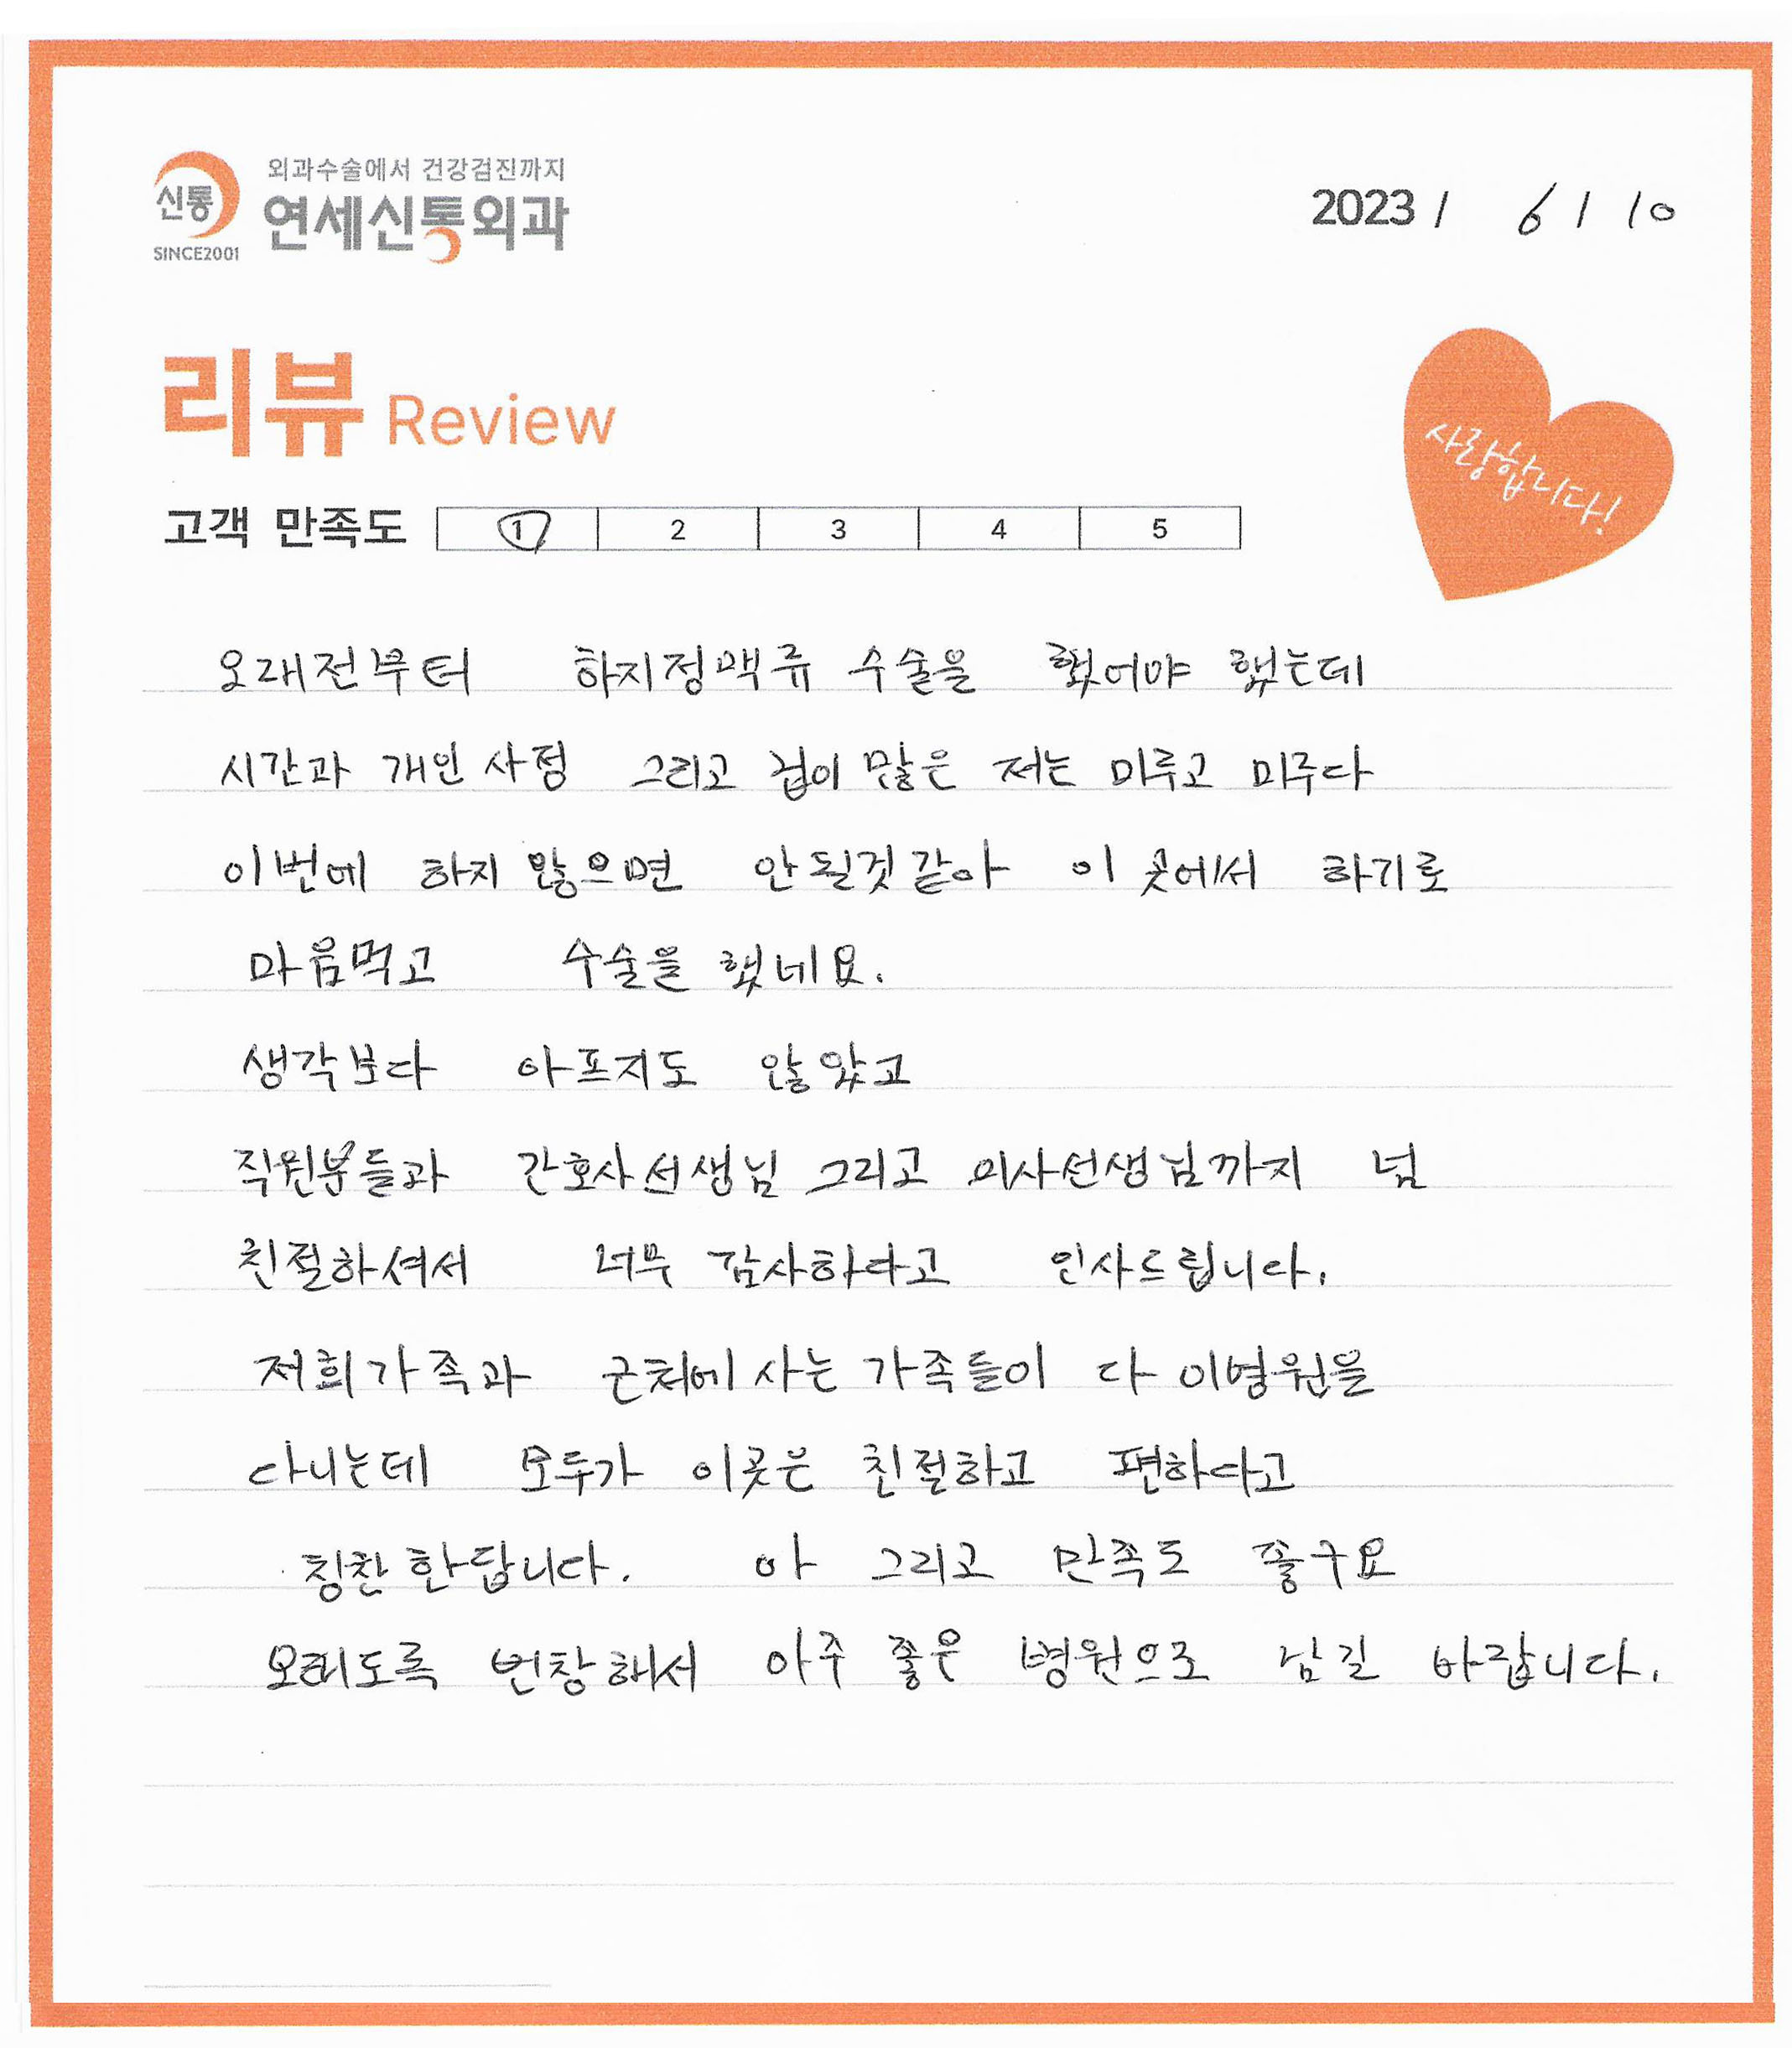 외과수술에서 건강검진까지
신통
연세신통외과
SINCE2001
2023 / 6 / 10
리뷰 Review
사랑합니다!
고객 만족도 1 2 3 4 5
오래전부터 하지정맥류 수술을 했어야 했는데
시간과 개인 사정 그리고 겁이 많은 저는 미루고 미루다
이번에 하지 않으면 안될것 같아 이 곳에서 하기로
마음먹고 수술을 했네요.
생각보다 아프지도 않았고
직원분들과 간호사선생님 그리고 의사선생님까지 넘
친절하셔서 너무 감사하다고 인사드립니다.
저희가족과 근처에 사는 가족들이 다 이병원을
다니는데 모두가 이곳은 친절하고 편하다고
칭찬한답니다. 아 그리고 만족도 좋구요
오래도록 번창해서 아주 좋은 병원으로 남길 바랍니다.